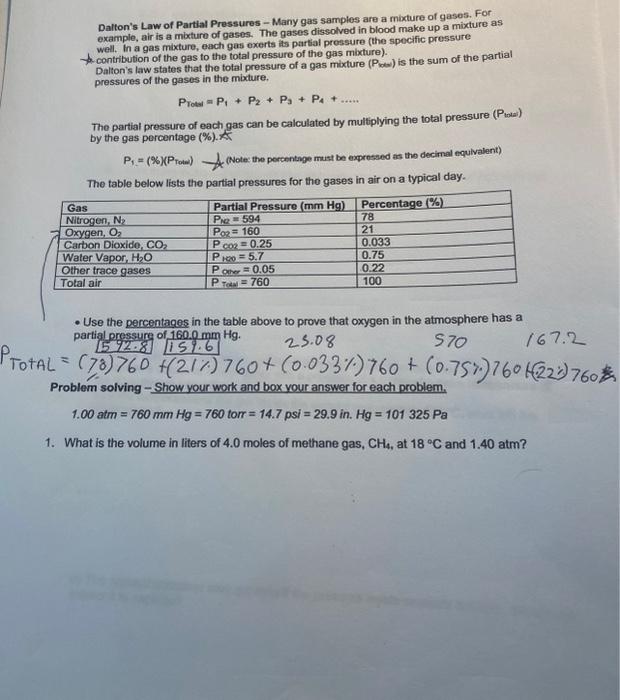 Dalton's Law of Partial Pressures – Many gas samples are a mixture of gases. For
example, air is a mixture of gases. The gases dissolved in blood make up a mixture as
well. In a gas mixture, each gas exerts its partial pressure (the specific pressure
contribution of the gas to the total pressure of the gas mixture).
Dalton's law states that the total pressure of a gas mixture (Ptotal) is the sum of the partial
pressures of the gases in the mixture.
PTotal = P1 + P2 + P3 + P4 + .....
The partial pressure of each gas can be calculated by multiplying the total pressure (Ptotal)
by the gas percentage (%).
P1 = (%)(PTotal) (Note: the percentage must be expressed as the decimal equivalent)
The table below lists the partial pressures for the gases in air on a typical day.
Gas Partial Pressure (mm Hg) Percentage (%)
Nitrogen, N2 PN2 = 594 78
Oxygen, O2 PO2 = 160 21
Carbon Dioxide, CO2 P CO2 = 0.25 0.033
Water Vapor, H2O P H2O = 5.7 0.75
Other trace gases P Other = 0.05 0.22
Total air P Total = 760 100
• Use the percentages in the table above to prove that oxygen in the atmosphere has a
partial pressure of 160.0 mm Hg.
592.8 159.6 25.08 570 167.2
PTOTAL = (78)760 + (21%)760 + (0.033%)760 + (0.75%)760 + (22%)760
Problem solving – Show your work and box your answer for each problem.
1.00 atm = 760 mm Hg = 760 torr = 14.7 psi = 29.9 in. Hg = 101 325 Pa
1. What is the volume in liters of 4.0 moles of methane gas, CH4, at 18 °C and 1.40 atm?